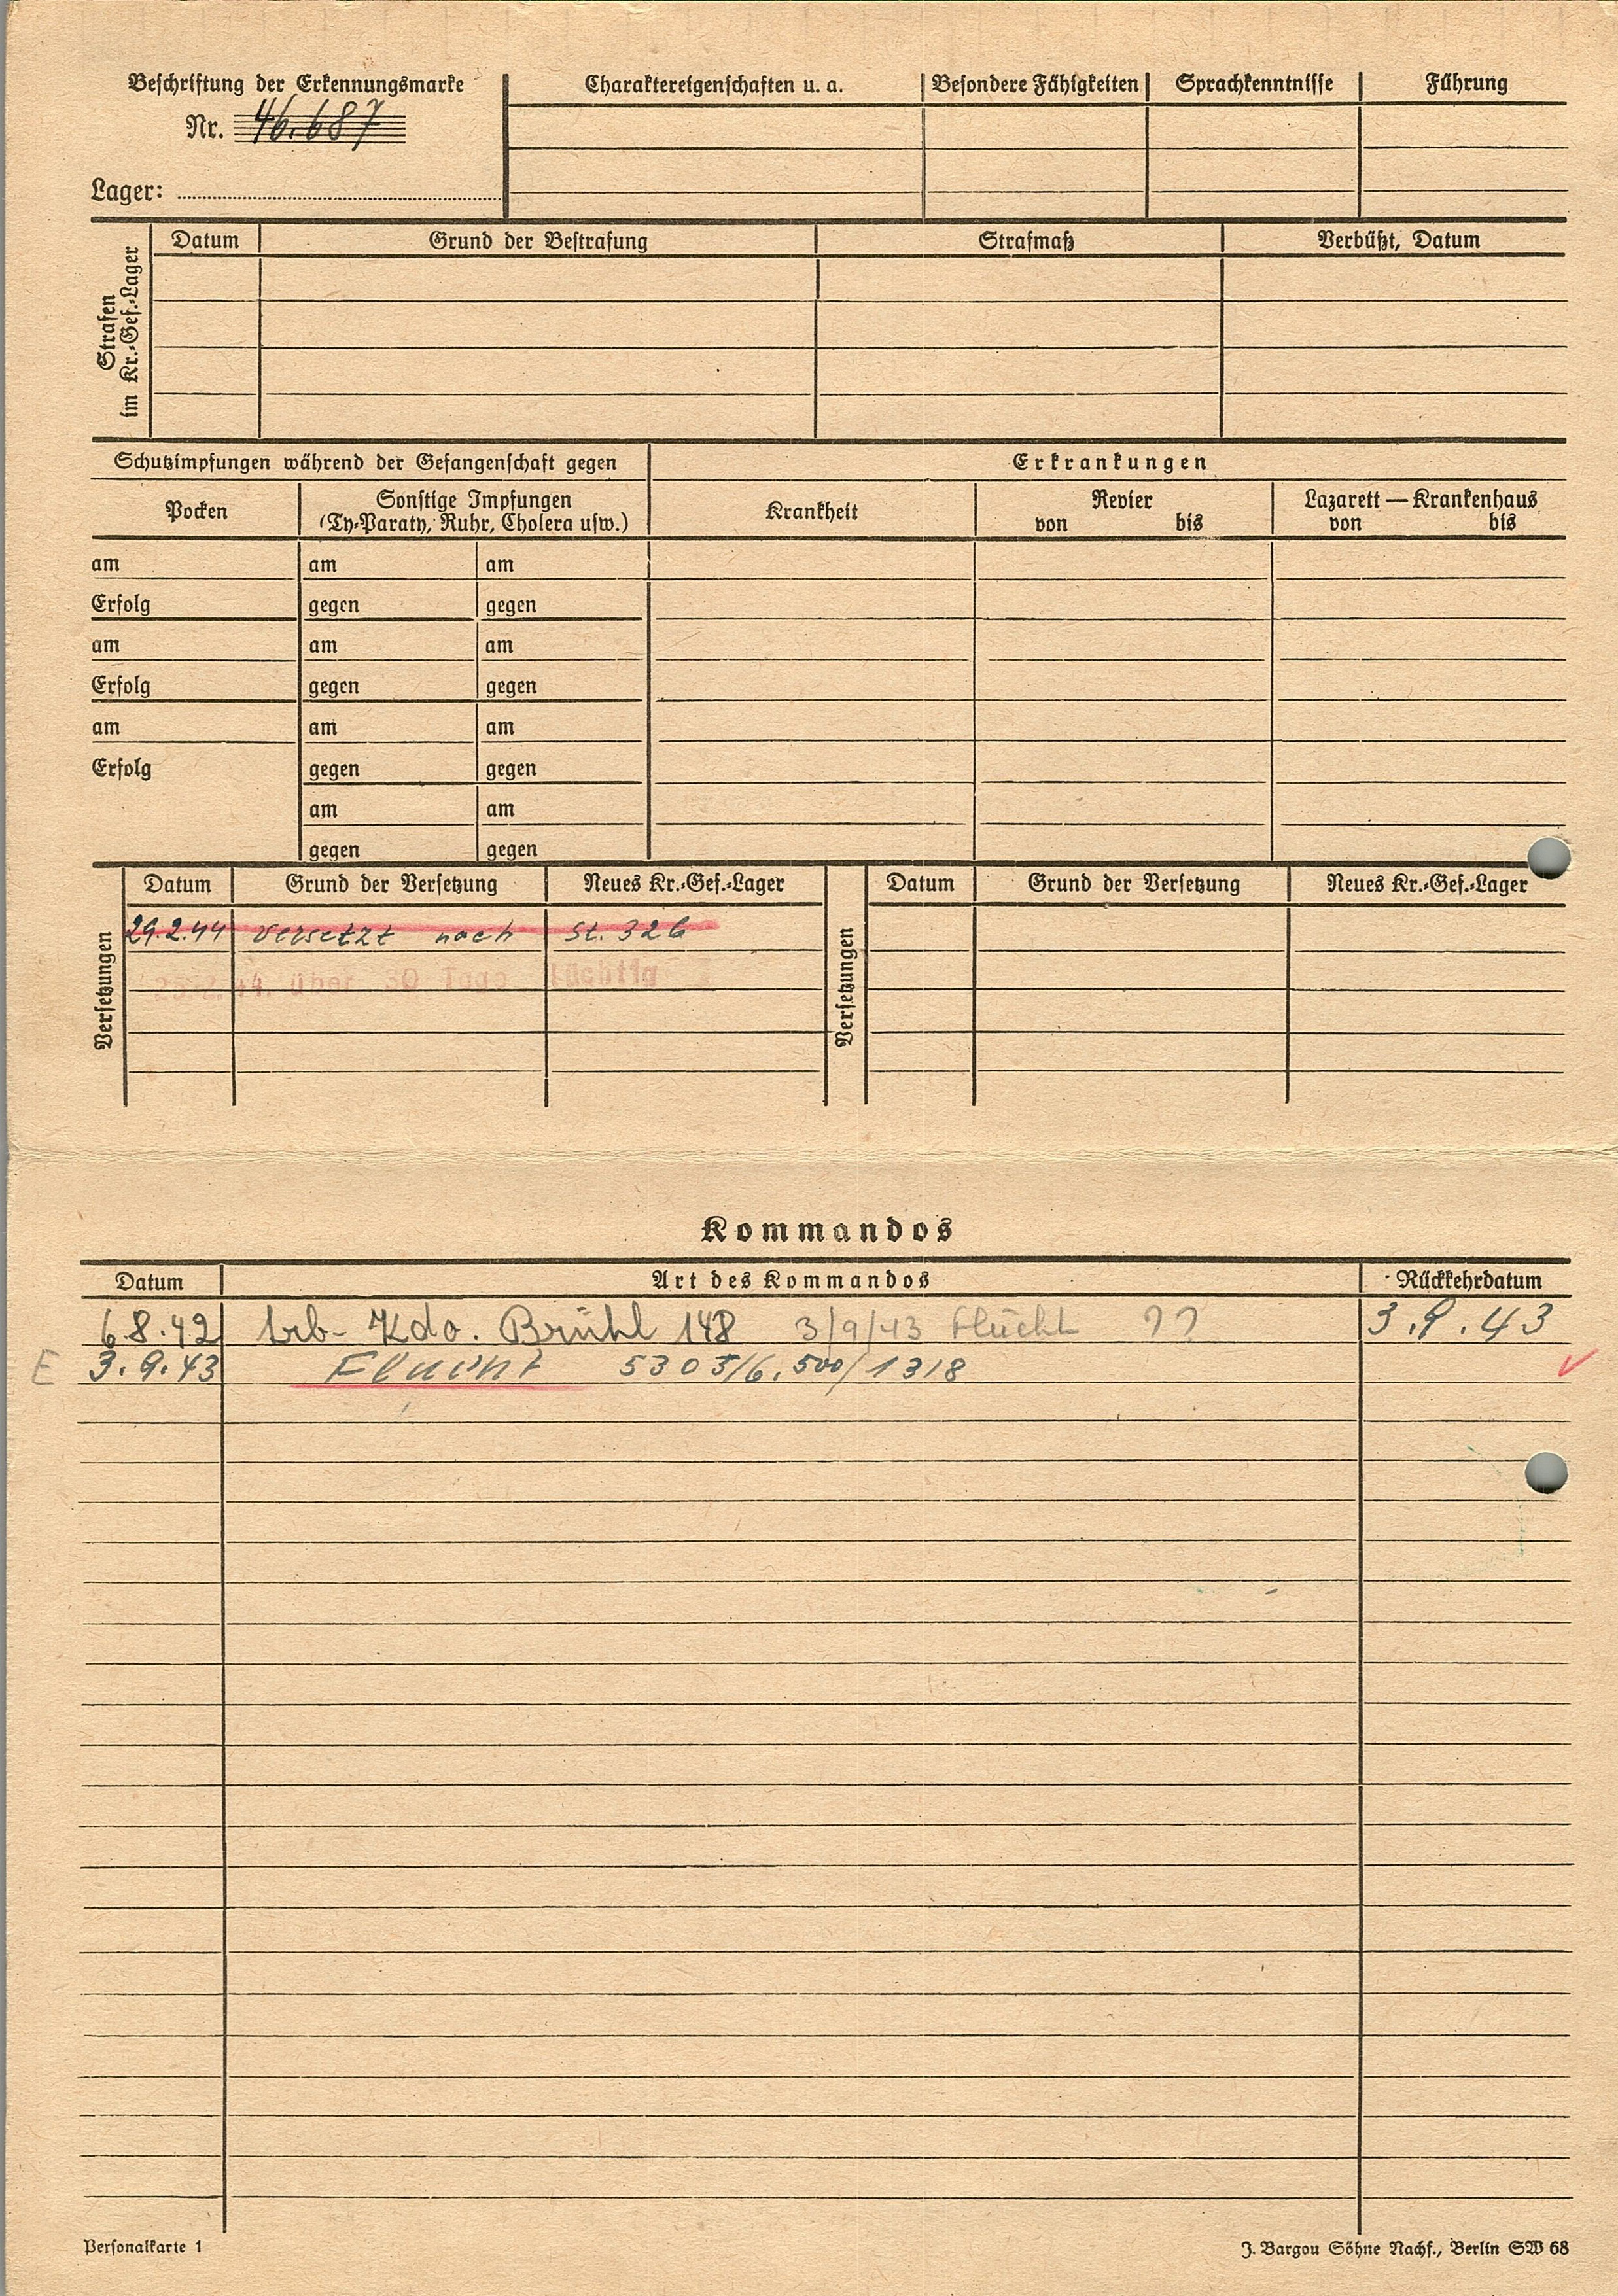 Beschriftung der Erkennungsmarke
Nr. 46.687
Lager:
Charaktereigenschaften u. a. Besondere Fähigkeiten Sprachkenntnisse Führung
Strafen im Kr.-Gef.-Lager
Datum Grund der Bestrafung Strafmaß Verbüßt, Datum
Schutzimpfungen während der Gefangenschaft gegen Erkrankungen
Pocken
Sonstige Impfungen
(Ty-Paraty, Ruhr, Cholera usw.)
Krankheit
Revier
von bis
Lazarett — Krankenhaus
von bis
am am am
Erfolg gegen gegen
am am am
Erfolg gegen gegen
am am am
Erfolg gegen gegen
am am
gegen gegen
Versetzungen
Datum Grund der Versetzung Neues Kr.-Gef.-Lager
29.2.44 versetzt nach St. 326
über 30 Tage flüchtig
Versetzungen
Datum Grund der Versetzung Neues Kr.-Gef.-Lager
Kommandos
Datum Art des Kommandos Rückkehrdatum
6.8.42 Arb-Kdo. Brühl 148 3/9/43 Flucht ?? 3.9.43
E 3.9.43 Flucht 5305/6.500/1318
Personalkarte 1
J. Bargou Söhne Nachf., Berlin SW 68